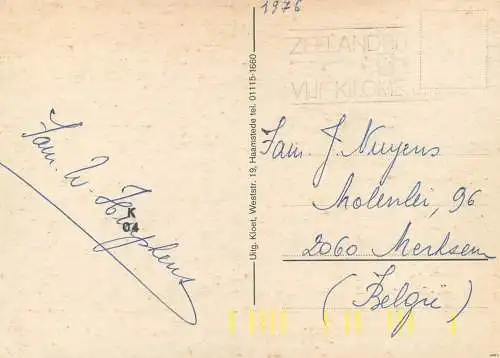 1976
ZEELANDBRUG
VIJF KILOME
Fam. W.
K
04
Uitg. Kloet, Weststr. 19, Haamstede tel. 01115-1660
Fam. J. Nuyens
Molenlei, 96
2060 Merksem
(België)